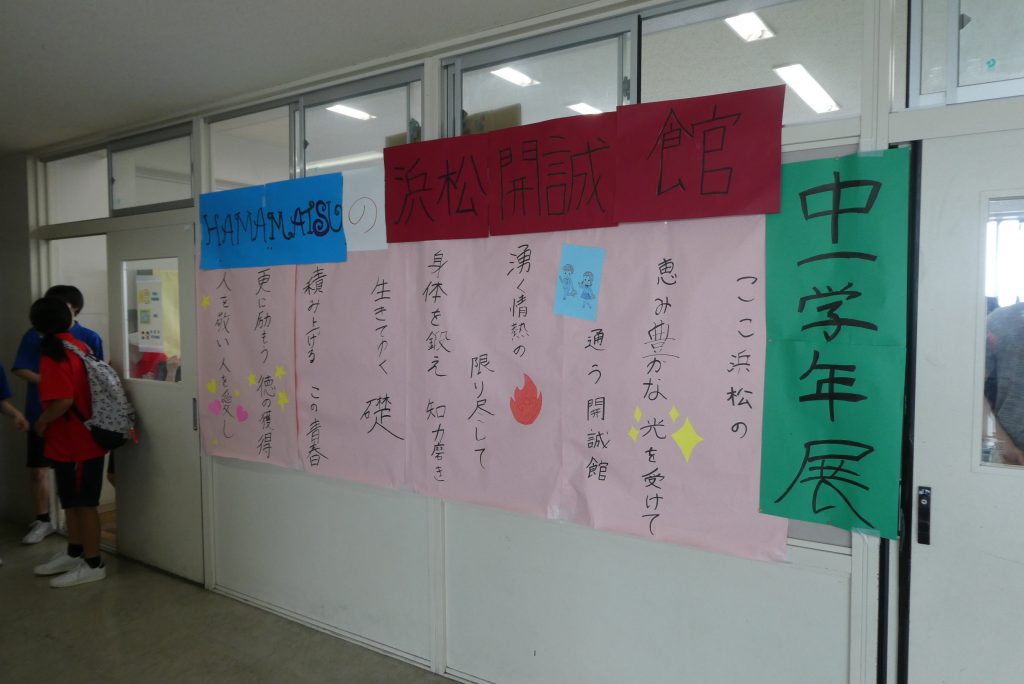 中一学年展
HAMAMATSUの浜松開誠館
ここ浜松の
恵み豊かな 光を受けて
通う開誠館
湧く情熱の
限り尽して
身体を鍛え 知力磨き
生きてゆく 礎
積み上げる この青春
更に励もう 徳の獲得
人を敬い 人を愛し